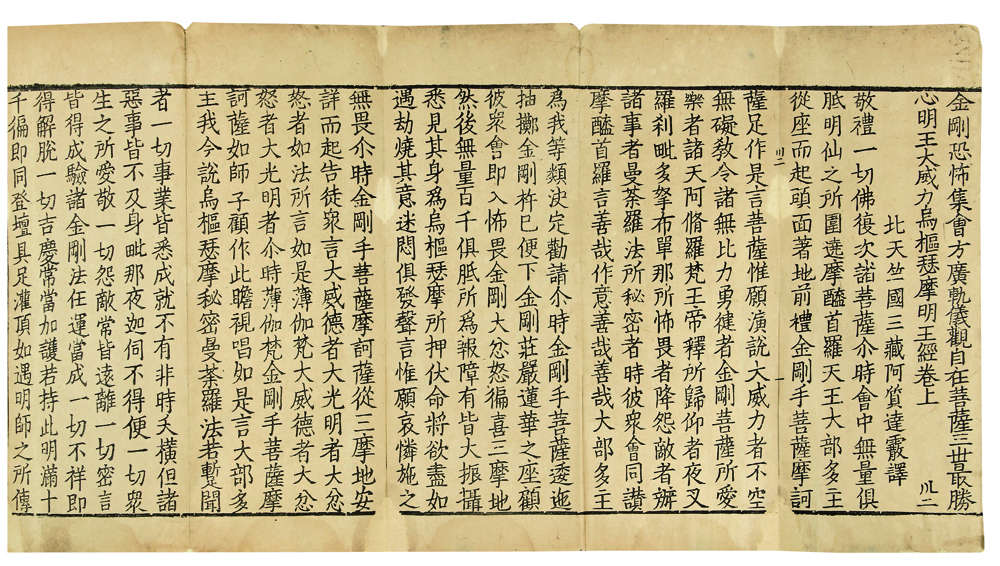 金剛恐怖集會方廣軌儀觀自在菩薩三世最勝
心明王大威力烏樞瑟摩明王經卷上
北天竺國三藏阿質達霰譯
敬禮一切佛復次諾菩薩尒時會中無量俱
胝明仙之所圍遶摩醯首羅天王大部多主
從座而起頭面著地前禮金剛手菩薩摩訶
薩足作是言菩薩惟願演說大威力者不空
無礙教令諸無比力勇健者金剛菩薩所愛
樂者諸天阿脩羅梵王帝釋所歸仰者夜叉
羅剎毗多拏布單那所怖畏者降怨敵者辦
諸事者曼荼羅法所秘密者時彼衆會同讃
摩醯首羅言善哉作意善哉善哉大部多主
爲我等類決定勸請尒時金剛手菩薩逶迤
抽擲金剛杵已便下金剛莊嚴蓮華之座顧
彼衆會即入怖畏金剛大忿怒徧喜三摩地
然後無量百千俱胝所爲報障有皆大振攝
悉見其身爲烏樞瑟摩所押伏命將欲盡如
遇劫燒其意迷悶俱發聲言惟願哀憐施之
無畏尒時金剛手菩薩摩訶薩從三摩地安
詳而起告徒衆言大威德者大光明者大忿
怒者如法所言如是薄伽梵大威德者大忿
怒者大光明者尒時薄伽梵金剛手菩薩摩
訶薩如師子顧作此瞻視唱如是言大部多
主我今說烏樞瑟摩秘密曼荼羅法若暫聞
者一切事業皆悉成就不有非時夭横但諸
惡事皆不及身毗那夜迦伺不得便一切衆
生之所愛敬一切怨敵常皆遠離一切密言
皆得成驗諸金剛法任運當成一切不祥即
得解脫一切吉慶常當加護若持此明滿十
千徧即同登壇具足灌頂如遇明師之所傳